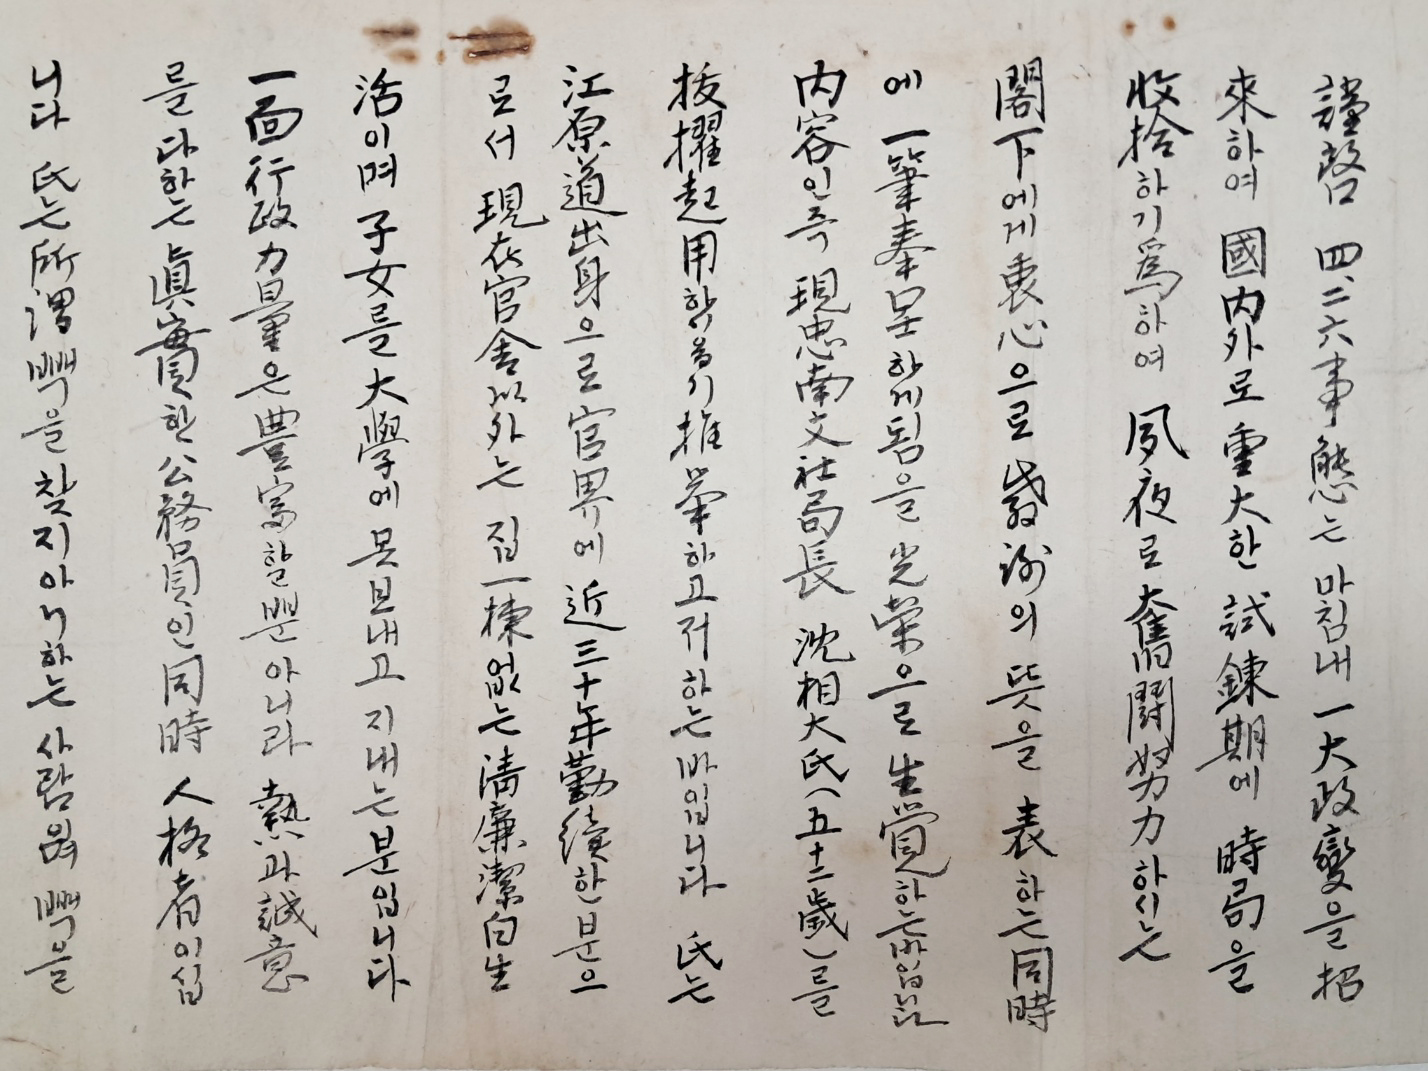 謹啓 四.二六事態는 마침내 一大政變을 招
來하여 國內外로 重大한 試鍊期에 時局을
收拾하기爲하여 夙夜로 奮鬪努力하시는
閣下에게 衷心으로 感謝의 뜻을 表하는同時
에 一筆奉呈하게됨을 光榮으로 生覺하는바입니다
內容인즉 現忠南文社局長 沈相大氏(五十二歲)를
拔擢起用하심을 추推擧하고저하는바입니다 氏는
江原道出身으로 官界에 近三十年勤續한분으
로서 現在官舍以外는 집一棟없는 淸廉潔白生
活이며 子女를 大學에 못보내고 지내는분입니다
一面行政力量은 豊富할뿐아니라 熱과誠意
를다하는 眞實한公務員인同時 人格者이십
니다 氏는所謂빽을찾지아니하는사람일빽을